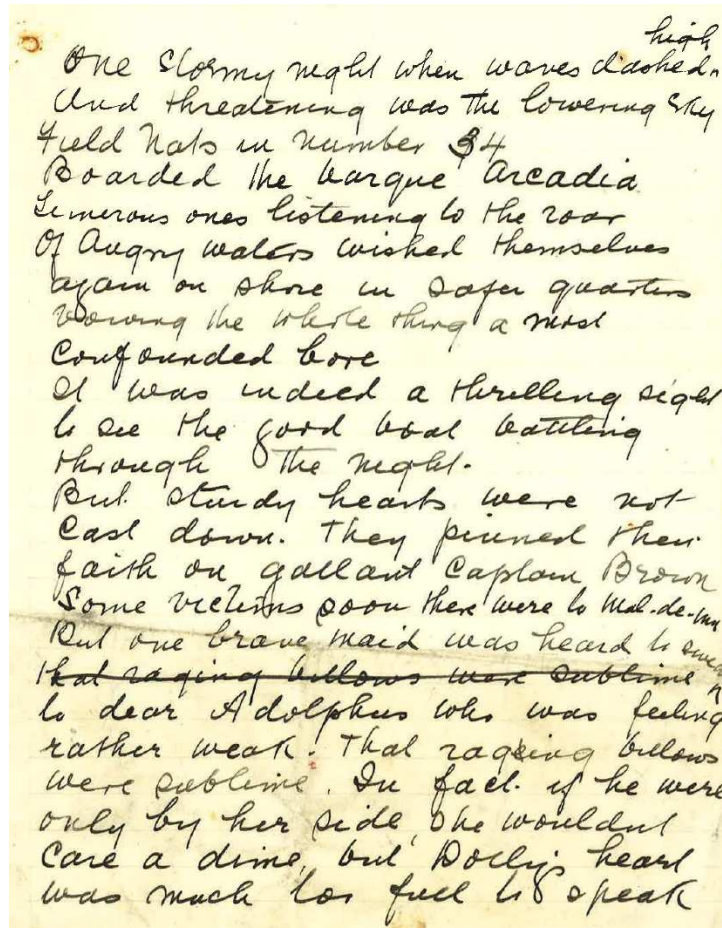 One stormy night when waves dashed high
And threatening was the lowering sky
Field Nats in number 34
Boarded the barque Arcadia
Timerous ones listening to the roar
Of Angry waters wished themselves
again on shore in safer quarters
vowing the whole thing a most
confounded bore
It was indeed a thrilling sight
to see the good boat battling
through the night.
But sturdy hearts were not
cast down. They pinned their
faith on gallant Captain Brown
Some victims soon there were to Mal-de-mer
But one brave maid was heard to swear
that raging billows were sublime
to dear Adolphus who was feeling
rather weak. That raging billows
were sublime. In fact. if he were
only by her side, she wouldnt
care a dime, but Dolly's heart
was much too full to speak